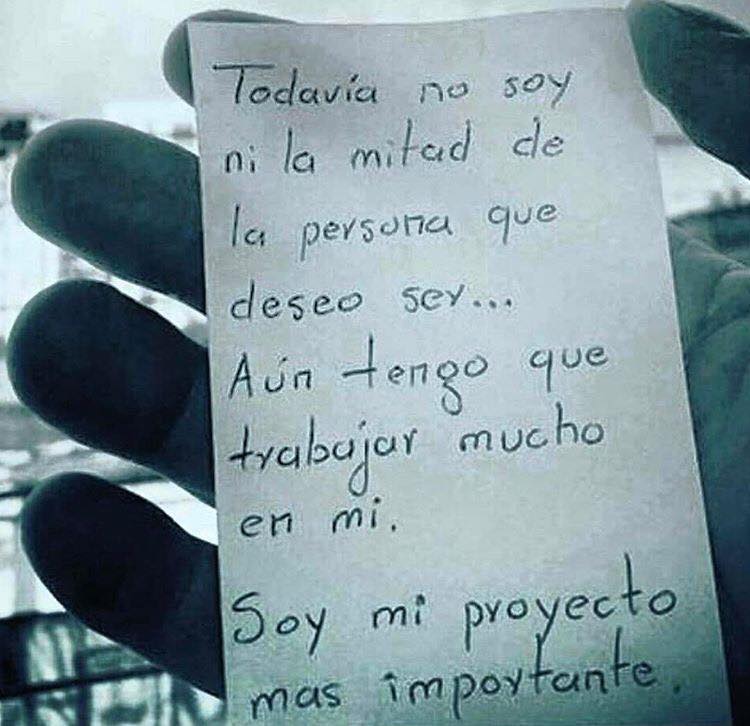 Todavía no soy
ni la mitad de
la persona que
deseo ser...
Aún tengo que
trabajar mucho
en mi.
Soy mi proyecto
mas importante.